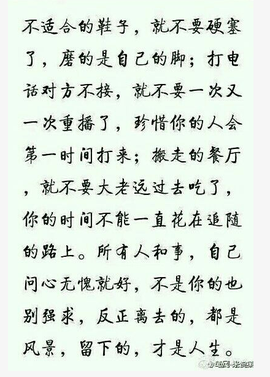 不适合的鞋子，就不要硬塞
了，磨的是自己的脚；打电
话对方不接，就不要一次又
一次重播了，珍惜你的人会
第一时间打来；搬走的餐厅
，就不要大老远过去吃了，
你的时间不能一直花在追随
的路上。所有人和事，自己
问心无愧就好，不是你的也
别强求，反正离去的，都是
风景，留下的，才是人生。